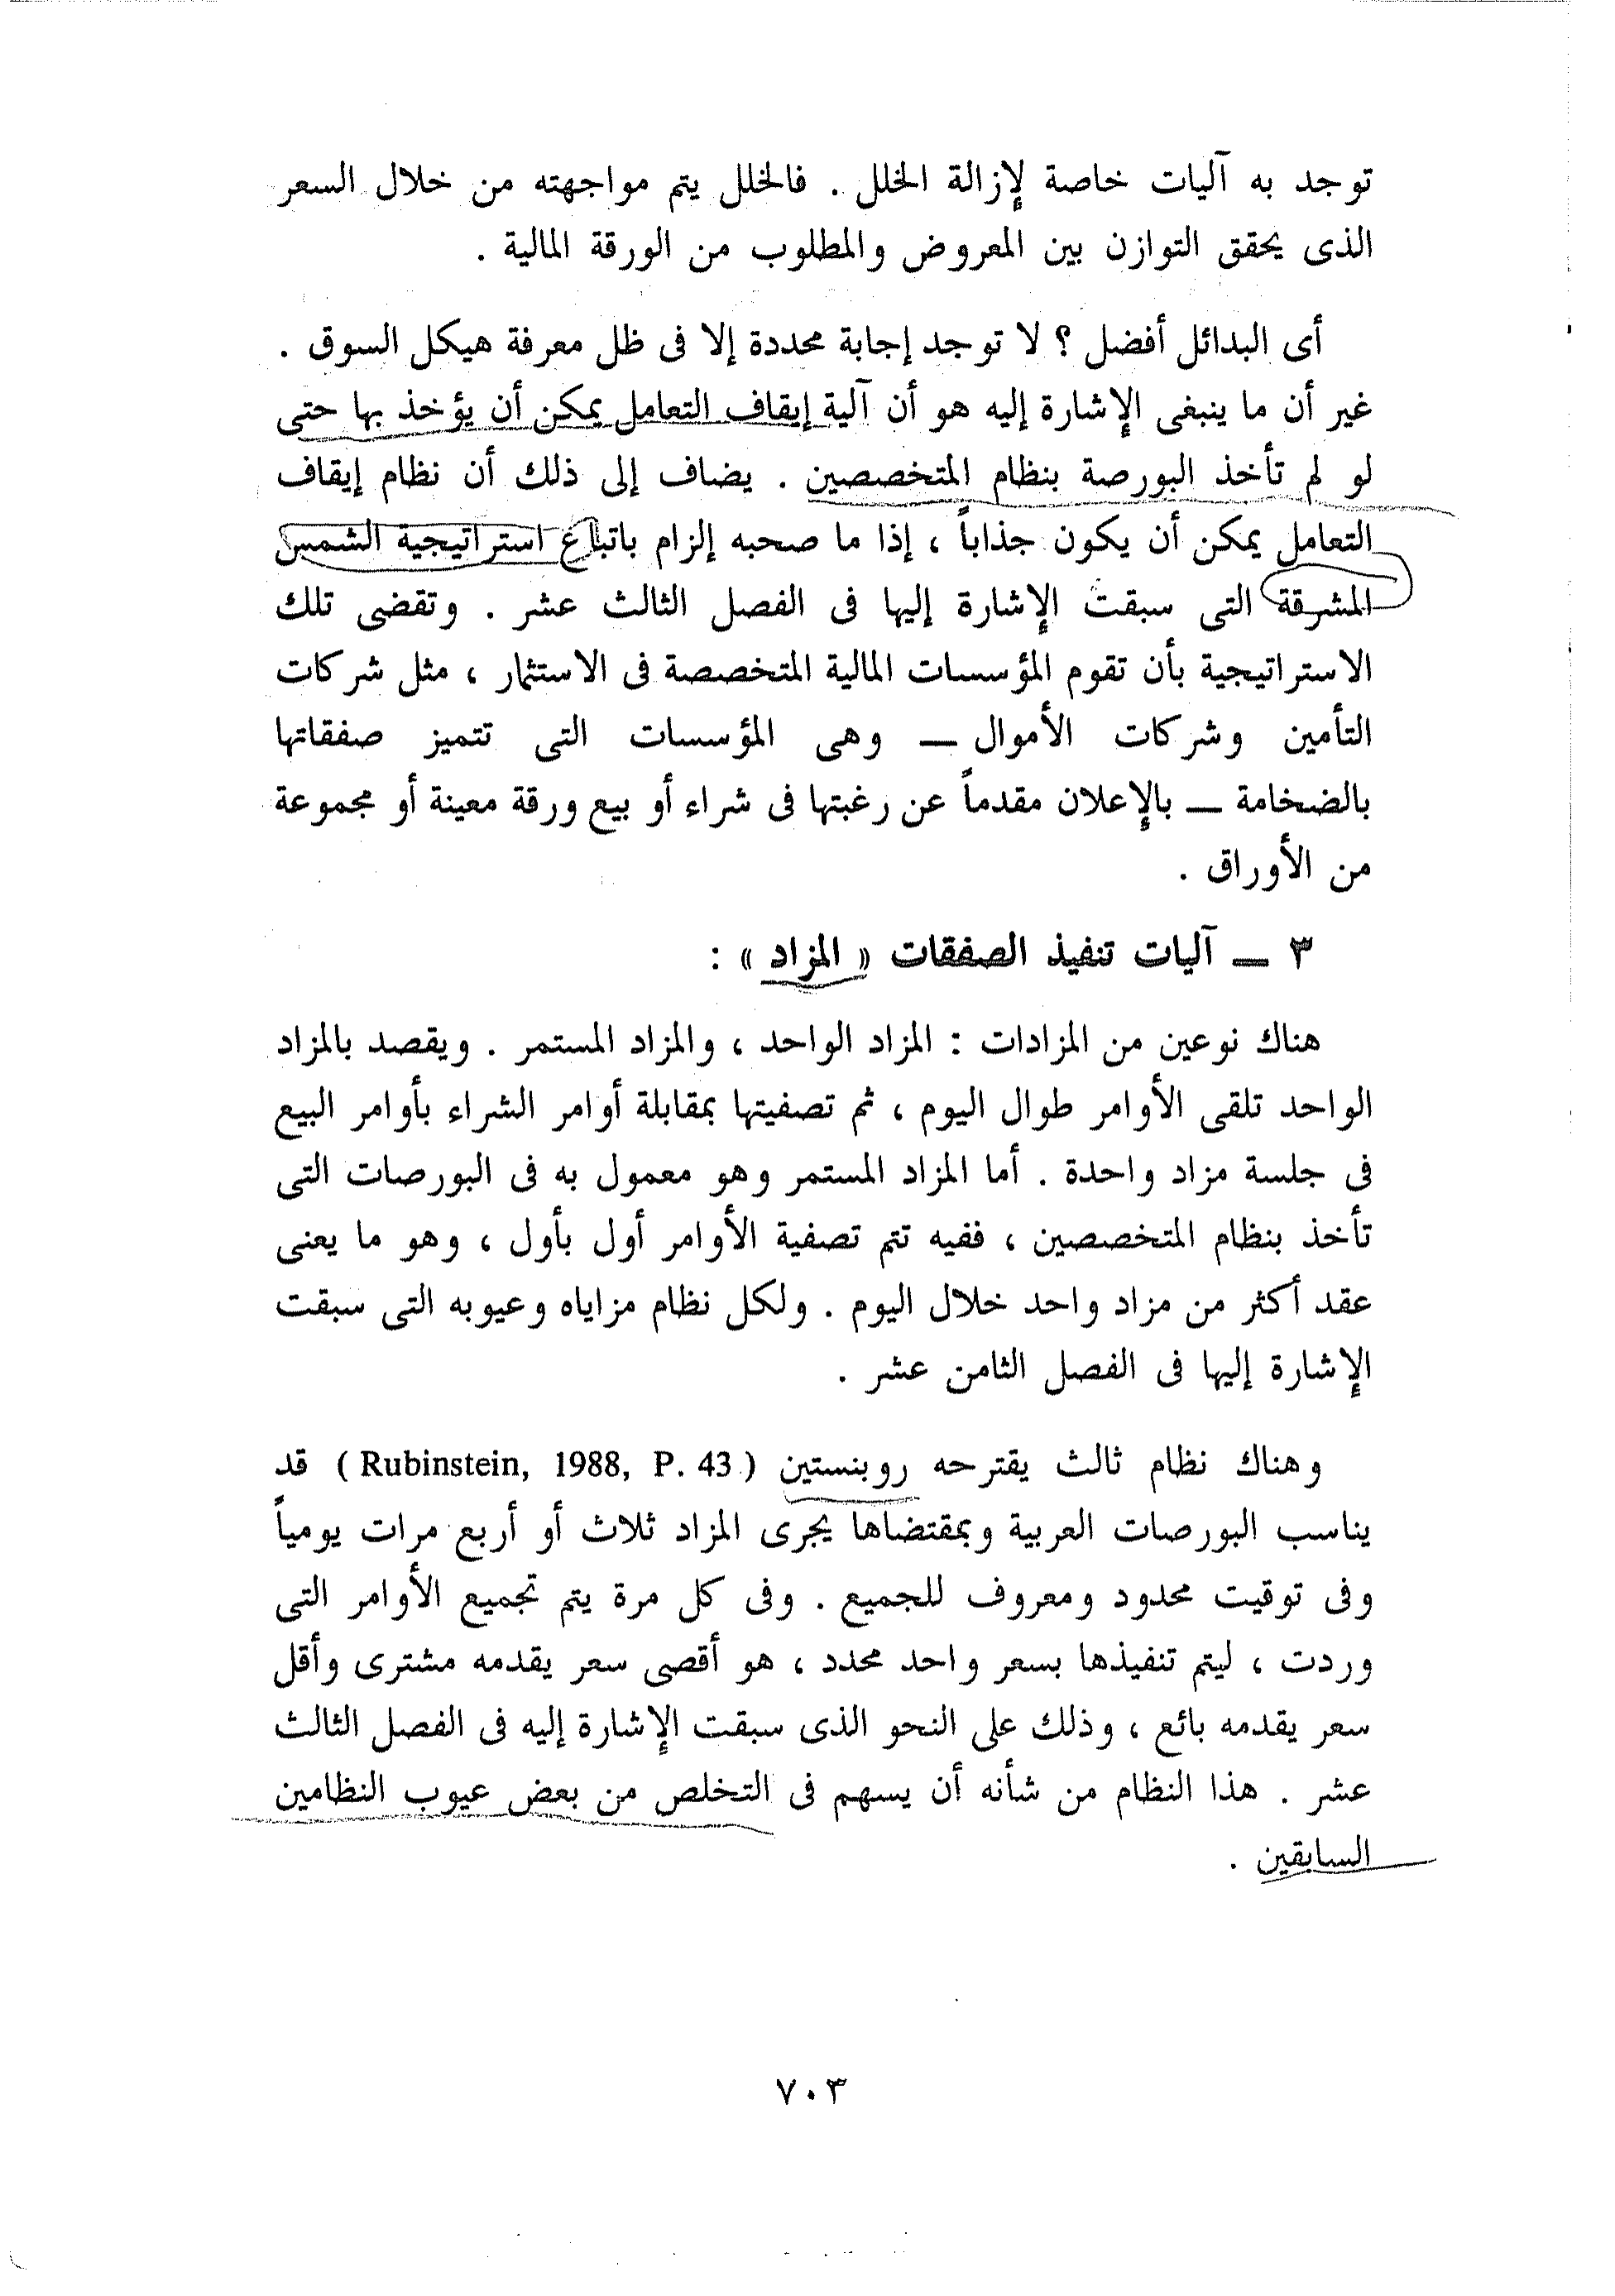 توجد به آليات خاصة لإزالة الخلل . فالخلل يتم مواجهته من خلال السعر
الذى يحقق التوازن بين المعروض والمطلوب من الورقة المالية .
أى البدائل أفضل ؟ لا توجد إجابة محددة إلا فى ظل معرفة هيكل السوق .
غير أن ما ينبغى الإشارة إليه هو أن آلية إيقاف التعامل يمكن أن يؤخذ بها حتى
لو لم تأخذ البورصة بنظام المتخصصين . يضاف إلى ذلك أن نظام إيقاف
التعامل يمكن أن يكون جذاباً ، إذا ما صحبه إلزام باتباع استراتيجية الشمس
المشرقة التى سبقت الإشارة إليها فى الفصل الثالث عشر . وتقضى تلك
الاستراتيجية بأن تقوم المؤسسات المالية المتخصصة فى الاستثمار ، مثل شركات
التأمين وشركات الأموال ــ وهى المؤسسات التى تتميز صفقاتها
بالضخامة ــ بالإعلان مقدماً عن رغبتها فى شراء أو بيع ورقة معينة أو مجموعة
من الأوراق .
٣ ــ آليات تنفيذ الصفقات « المزاد » :
هناك نوعين من المزادات : المزاد الواحد ، والمزاد المستمر . ويقصد بالمزاد
الواحد تلقى الأوامر طوال اليوم ، ثم تصفيتها بمقابلة أوامر الشراء بأوامر البيع
فى جلسة مزاد واحدة . أما المزاد المستمر وهو معمول به فى البورصات التى
تأخذ بنظام المتخصصين ، ففيه تتم تصفية الأوامر أول بأول ، وهو ما يعنى
عقد أكثر من مزاد واحد خلال اليوم . ولكل نظام مزاياه وعيوبه التى سبقت
الإشارة إليها فى الفصل الثامن عشر .
وهناك نظام ثالث يقترحه روبنستين (Rubinstein, 1988, P. 43) قد
يناسب البورصات العربية وبمقتضاها يجرى المزاد ثلاث أو أربع مرات يومياً
وفى توقيت محدود ومعروف للجميع . وفى كل مرة يتم تجميع الأوامر التى
وردت ، ليتم تنفيذها بسعر واحد محدد ، هو أقصى سعر يقدمه مشترى وأقل
سعر يقدمه بائع ، وذلك على النحو الذى سبقت الإشارة إليه فى الفصل الثالث
عشر . هذا النظام من شأنه أن يسهم فى التخلص من بعض عيوب النظامين
السابقين .
٧٠٣